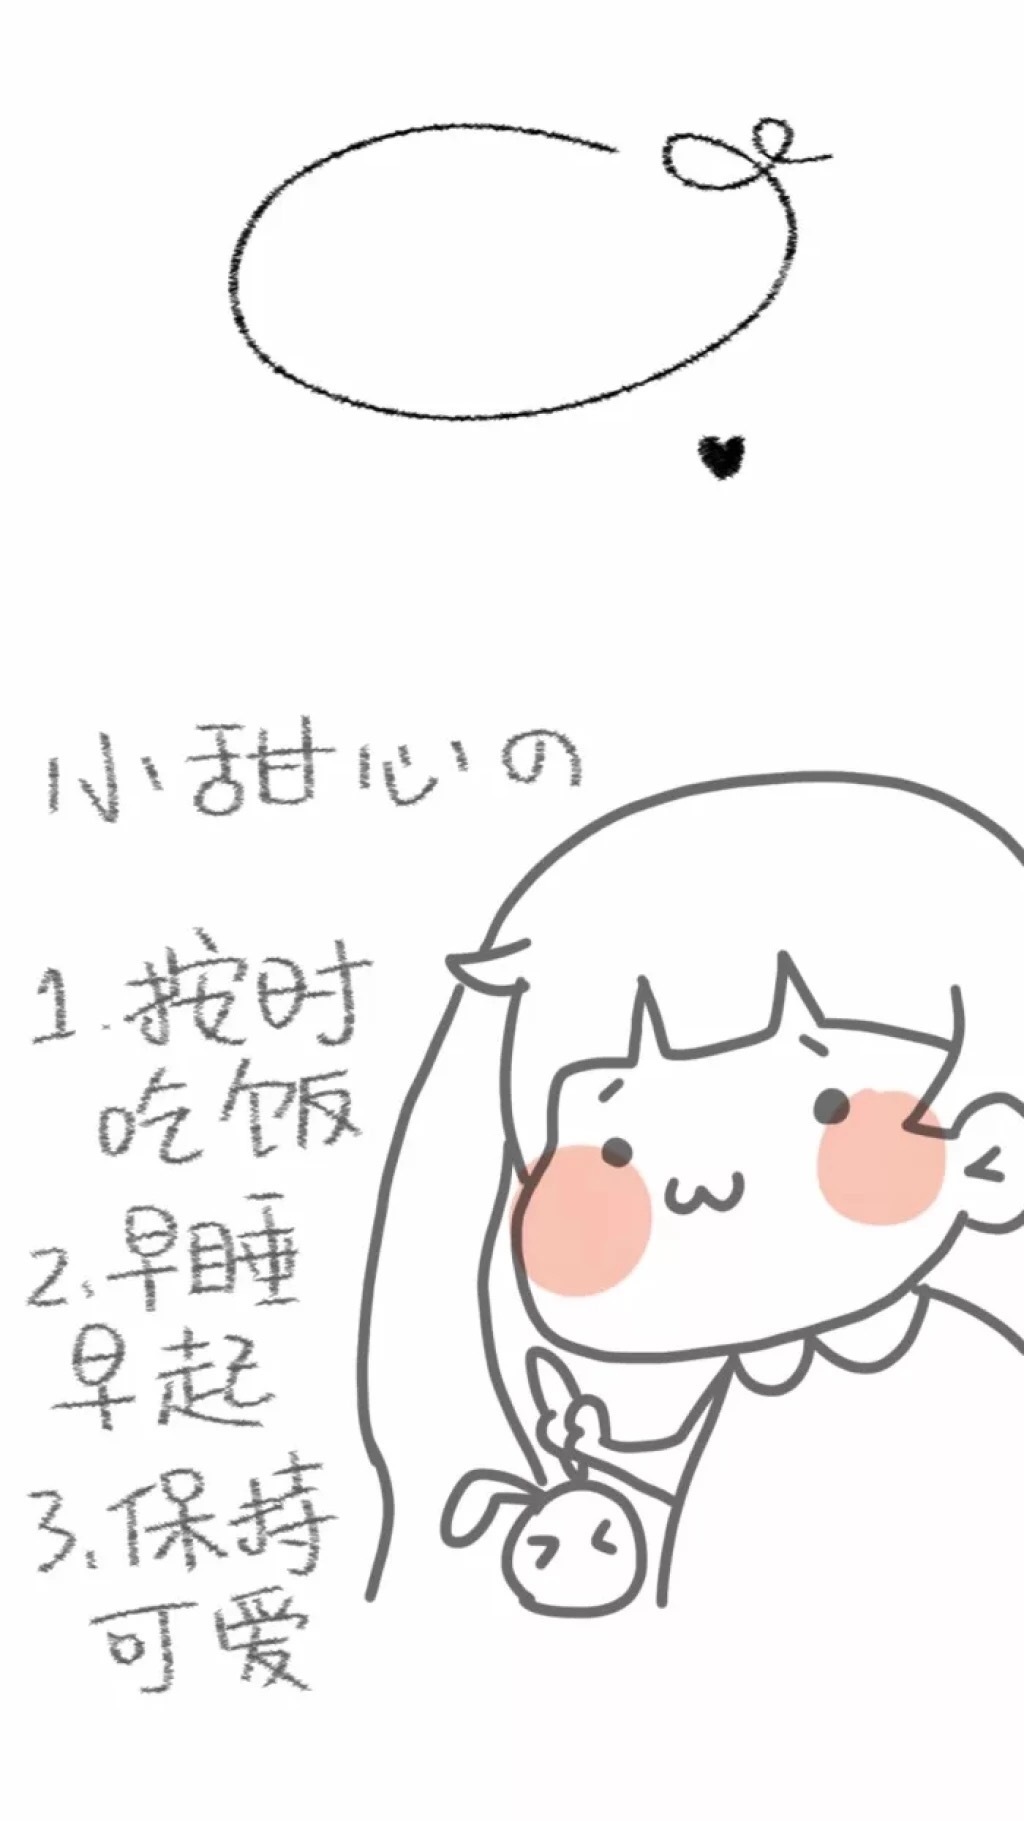 小甜心の
1.按时
吃饭
2.早睡
早起
3.保持
可爱